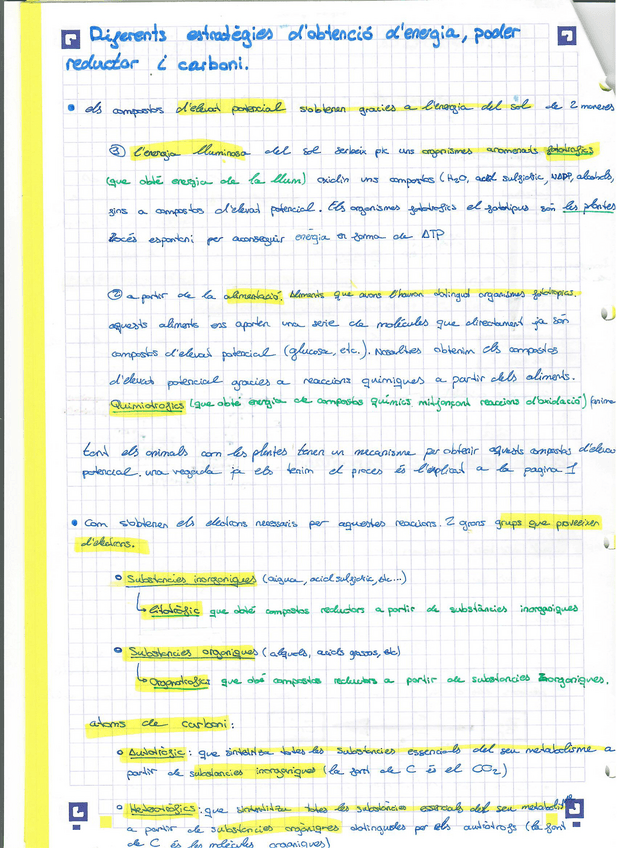 Diferents estratègies d'obtenció d'energia, poder
reductor i carboni.
• els compostos d'elevat potencial s'obtenen gracies a l'energia del sol de 2 maneres
l'energia lluminosa del sol serveix pk uns organismes anomenats fototrofics
(que obté energia de la llum) oxidin uns compostos (H2O, acid sulfidric, alcohols,
fins a compostos d'elevat potencial. Els organismes fototrofics el fototipus són les plantes
Procés espontani per aconseguir energia en forma de ATP
② a partir de la alimentació. Aliments que avans l'hauran obtingud organismes fototropics.
aquests aliments ens aporten una serie de molècules que directament ja són
compostos d'elevat potencial (glucosa, etc.). Nosaltres obtenim els compostos
d'elevat potencial gracies a reaccions quimiques a partir dels aliments.
Quimiotrofics (que obté energia de compostos químics mitjançant reaccions d'oxidació)
tant els animals com les plantes tenen un mecanisme per obtenir aquests compostos d'eleva
potencial. una vegada ja els tenim el proces és l'explicat a la pagina 1
• Com s'obtenen els electrons necessaris per aquestes reaccions. 2 grans grups que proveeixen
d'electrons.
• Substancies inorganiques (aigua, acid sulfidric, etc...)
↳ Litotròfic que obté compostos reductors a partir de substàncies inorganiques
• Substancies organiques (alquols, acids grassos, etc)
↳ Organotrofics que obté compostos reductors a partir de substancies organiques.
atoms de carboni:
• Autotròfic: que sintetitza totes les substancies essencials del seu metabolisme a
partir de substancies inorganiques (la font de C és el CO2)
• Heterotròfics: que sintetitza totes les substàncies esencials del seu metabolis
a partir de substancies orgàniques obtingudes per els autòtrofs (la font
de C és les molècules organiques)